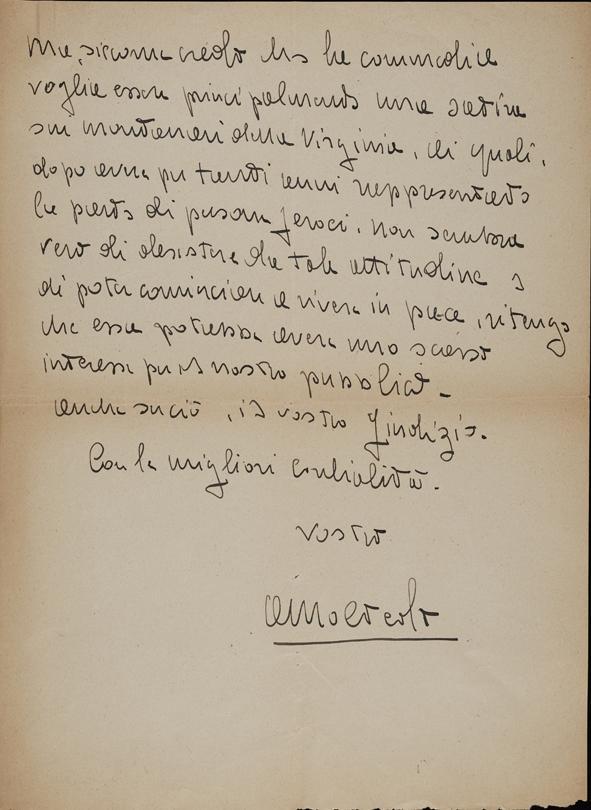 Ma, siccome credo che la commedia
voglia essere principalmente una satira
sui montanari della Virginia, ai quali,
dopo aver per tanti anni rappresentato
la parte di persone feroci, non sembra
vero di desistere da tale attitudine e
di poter cominciare a vivere in pace, ritengo
che essa potrebbe avere uno scarso
interesse per il nostro pubblico -
anche su ciò, il vostro giudizio.
Con la migliore cordialità.
vostro